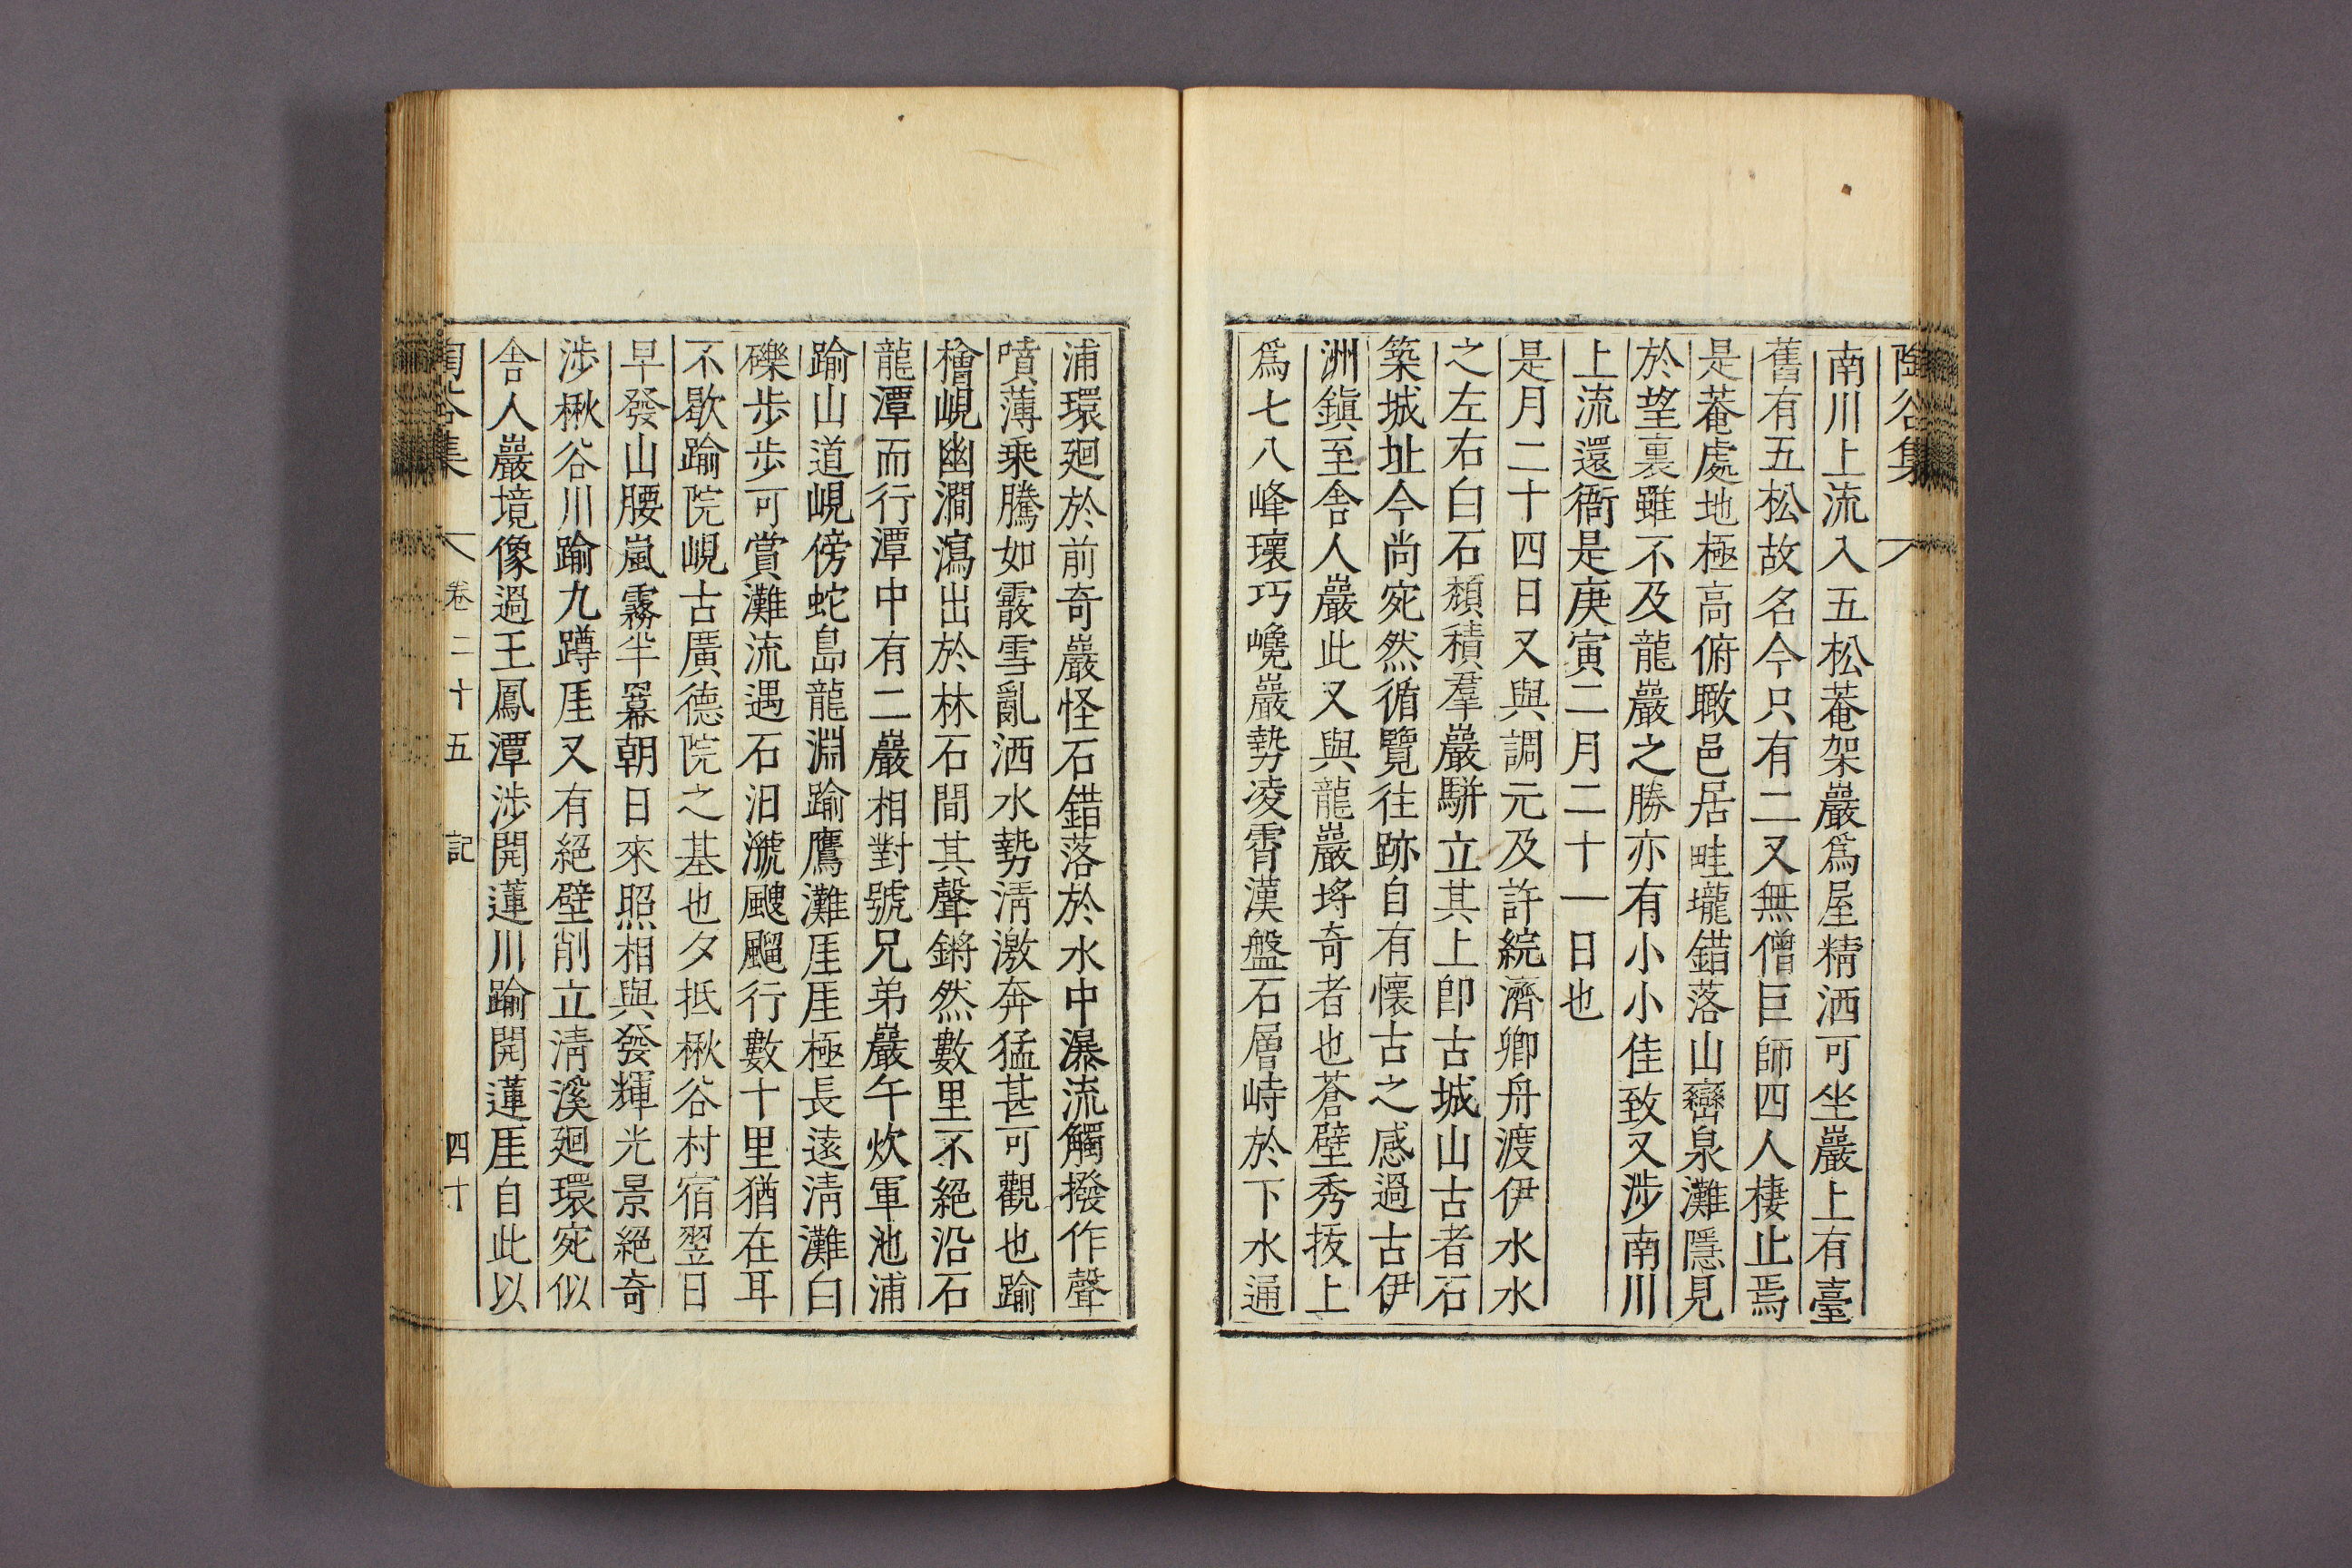 陶谷集
南川上流入五松菴架巖爲屋精洒可坐巖上有臺
舊有五松故名今只有二又無僧巨師四人棲止焉
是菴處地極高俯瞰邑居畦壠錯落山巒泉灘隱見
於望裏雖不及龍巖之勝亦有小小佳致又涉南川
上流還衙是庚寅二月二十一日也
是月二十四日又與調元及許綄濟卿舟渡伊水水
之左右白石頽積羣巖騈立其上卽古城山古者石
築城址今尚宛然循覽往跡自有懷古之感過古伊
洲鎭至舍人巖此又與龍巖埒奇者也蒼壁秀拔上
爲七八峰瓌巧巉巖勢凌霄漢盤石層峙於下水通
浦環廻於前奇巖怪石錯落於水中瀑流觸撥作聲
噴薄乗騰如霰雪亂洒水勢淸激奔猛甚可觀也踰
檜峴幽澗瀉出於林石間其聲鏘然數里不絕沿石
龍潭而行潭中有二巖相對號兄弟巖午炊軍池浦
踰山道峴傍蛇島龍淵踰鷹灘厓厓極長遠淸灘白
礫步步可賞灘流遇石汨㶁颼飀行數十里猶在耳
不歇踰院峴古廣德院之基也夕抵楸谷村宿翌日
早發山腰嵐霧半羃朝日來照相與發輝光景絕奇
涉楸谷川踰九蹲厓又有絕壁削立淸溪廻環宛似
舍人巖境像過王鳳潭涉開蓮川踰開蓮厓自此以
陶谷集 卷二十五 記 四十